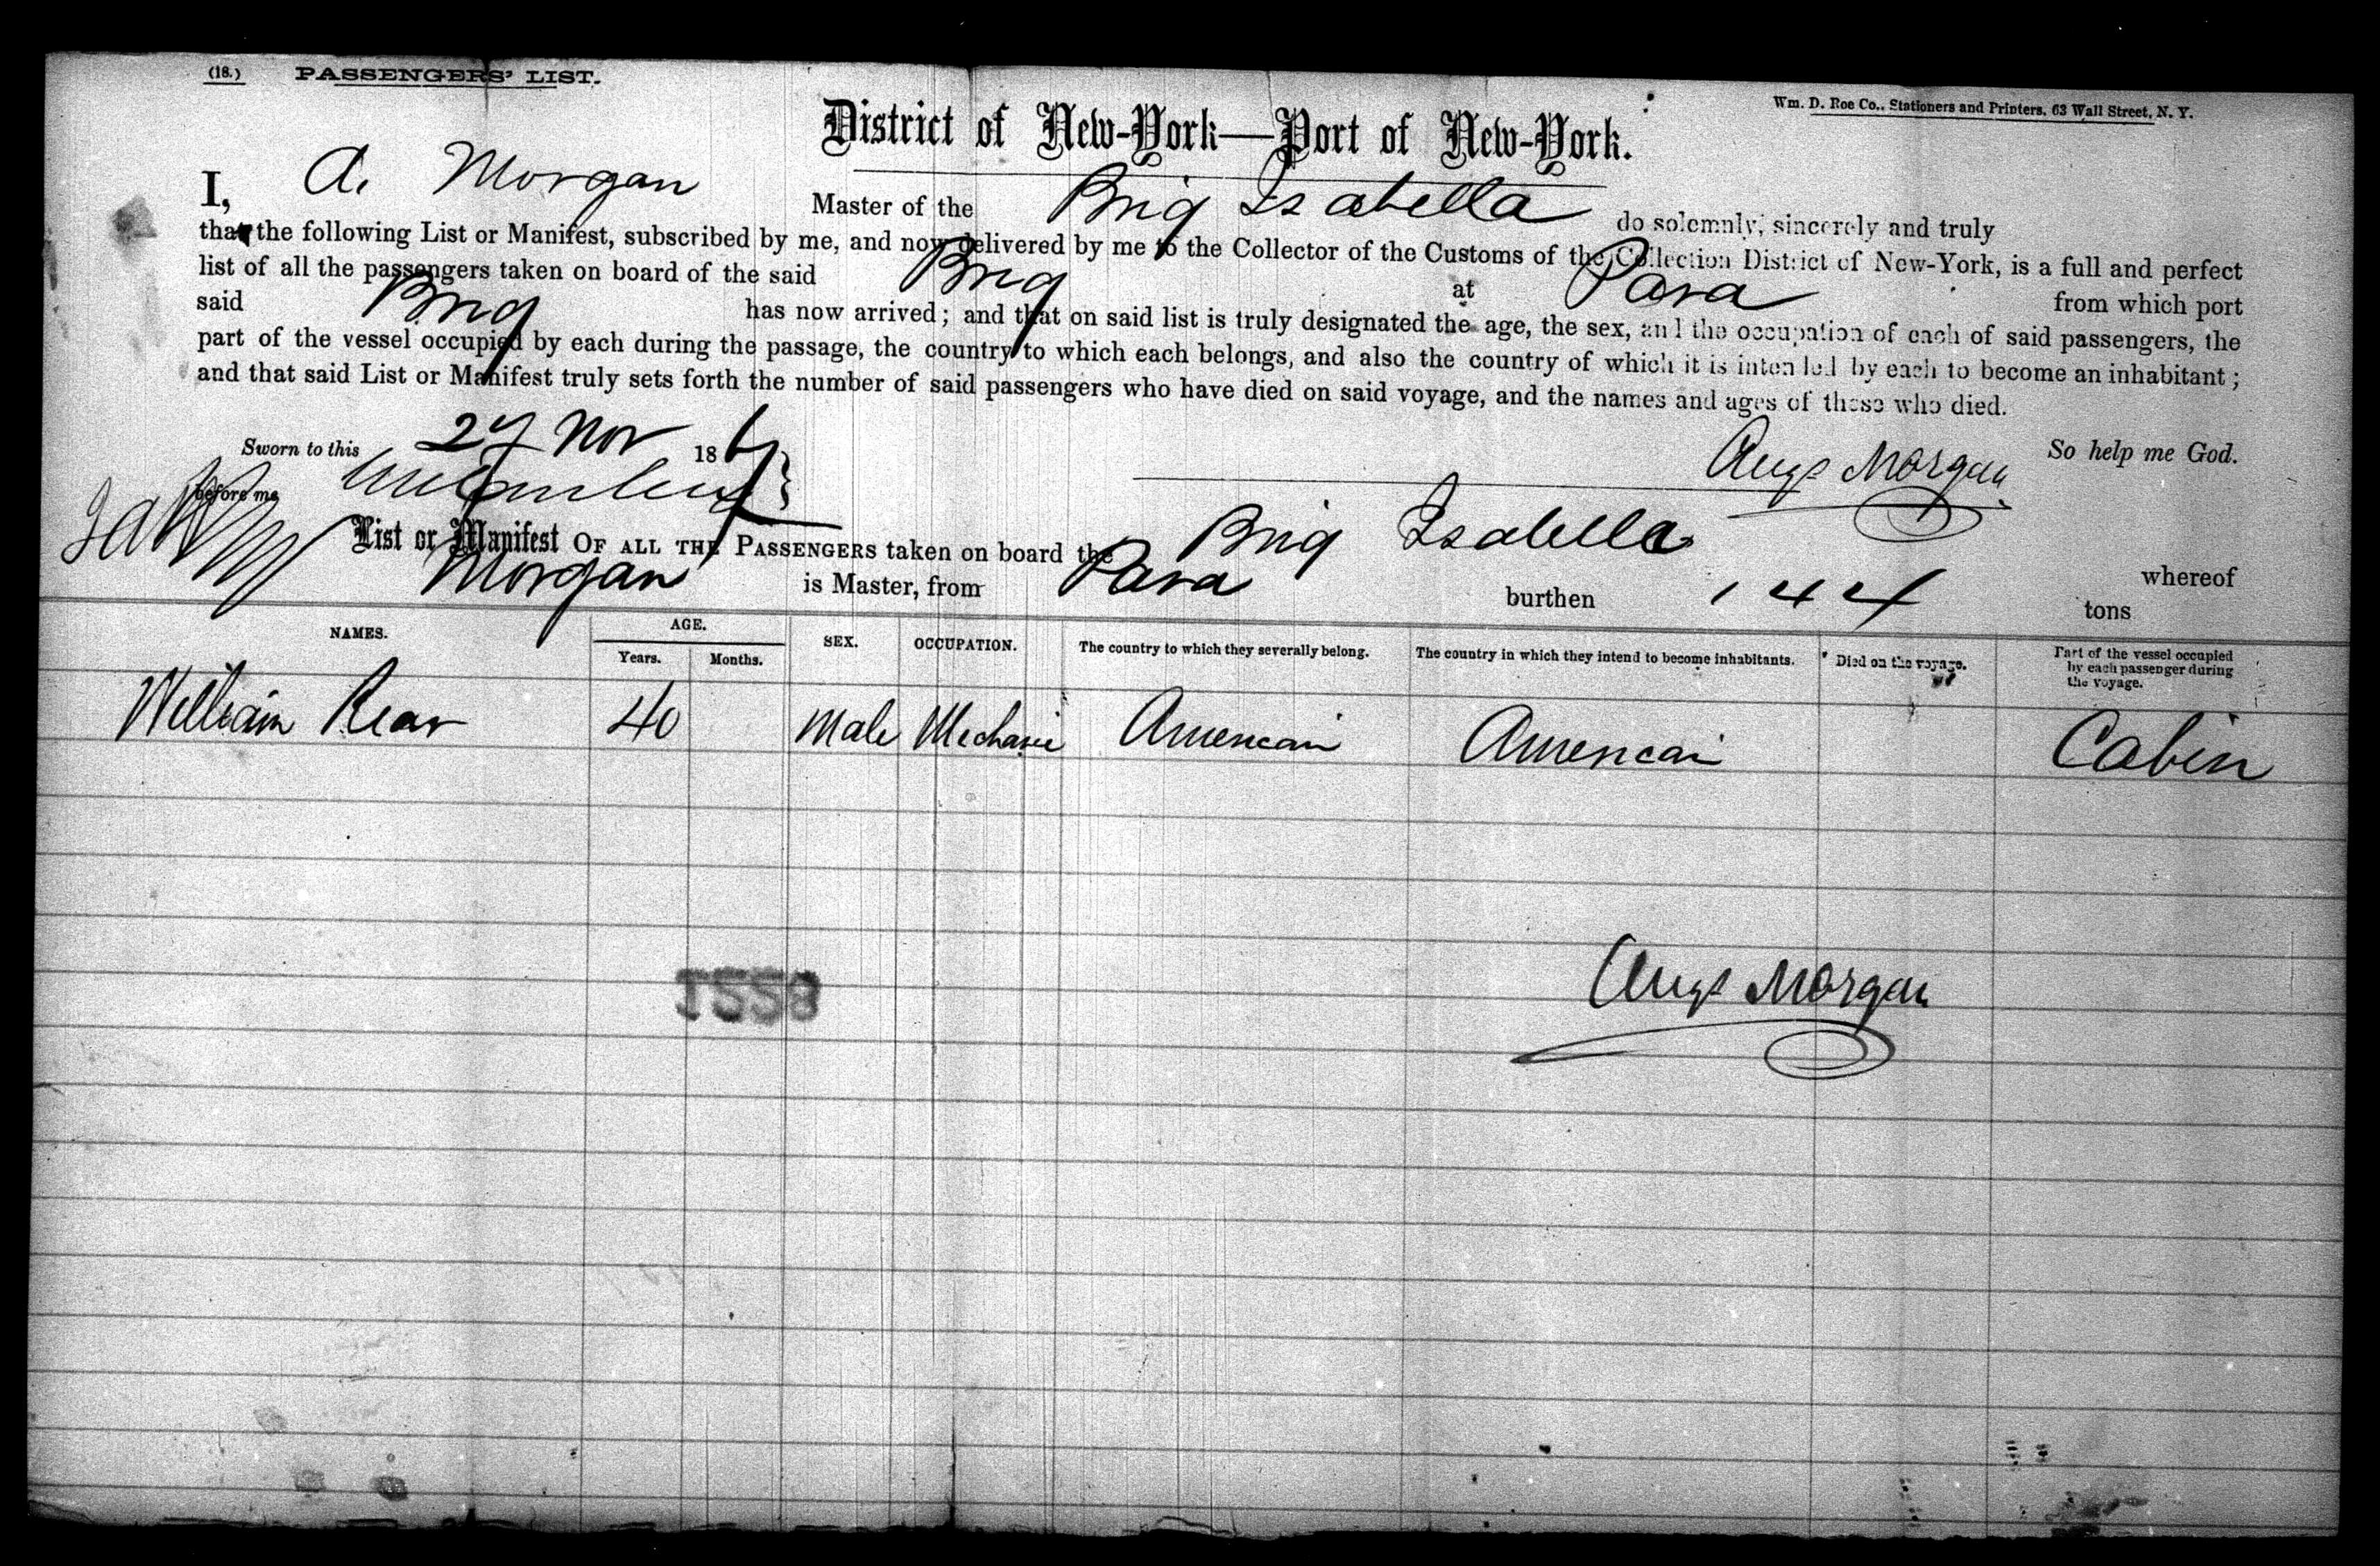 (18.) PASSENGERS' LIST.
Wm. D. Roe Co., Stationers and Printers, 63 Wall Street, N. Y.
District of New-York—Port of New-York.
I, A. Morgan Master of the Brig Isabella do solemnly, sincerely and truly
that the following List or Manifest, subscribed by me, and now delivered by me to the Collector of the Customs of the Collection District of New-York, is a full and perfect
list of all the passengers taken on board of the said Brig at Para from which port
said Brig has now arrived; and that on said list is truly designated the age, the sex, and the occupation of each of said passengers, the
part of the vessel occupied by each during the passage, the country to which each belongs, and also the country of which it is intended by each to become an inhabitant;
and that said List or Manifest truly sets forth the number of said passengers who have died on said voyage, and the names and ages of those who died.
Sworn to this 27 Nov 18 So help me God.
before me Augs Morgan
List or Manifest OF ALL THE PASSENGERS taken on board the Brig Isabella whereof
Morgan is Master, from Para burthen 144 tons
NAMES. AGE. Years. Months. SEX. OCCUPATION. The country to which they severally belong. The country in which they intend to become inhabitants. Died on the voyage. Part of the vessel occupied by each passenger during the voyage.
William Rear 40 Male Mechanic American American Cabin
Augs Morgan
1558